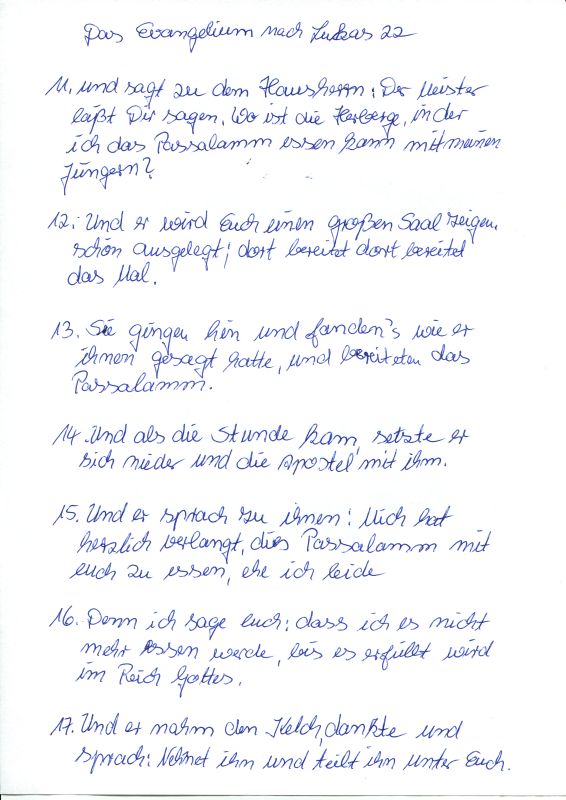 Das Evangelium nach Lukas 22
11. und sagt zu dem Hausherrn: Der Meister
läßt Dir sagen, Wo ist die Herberge, in der
ich das Passalamm essen kann mit meinen
Jüngern?
12. Und er wird Euch einen großen Saal zeigen,
schön ausgelegt; dort bereitet dort bereitet
das Mal.
13. Sie gingen hin und fanden's wie er
ihnen gesagt hatte, und bereiteten das
Passalamm.
14. Und als die Stunde kam, setzte er
sich nieder und die Apostel mit ihm.
15. Und er sprach zu ihnen: Mich hat
herzlich verlangt, dies Passalamm mit
euch zu essen, ehe ich leide
16. Denn ich sage euch: dass ich es nicht
mehr essen werde, bis es erfüllt wird
im Reich Gottes.
17. Und er nahm den Kelch, dankte und
sprach: Nehmet ihn und teilt ihn unter Euch.